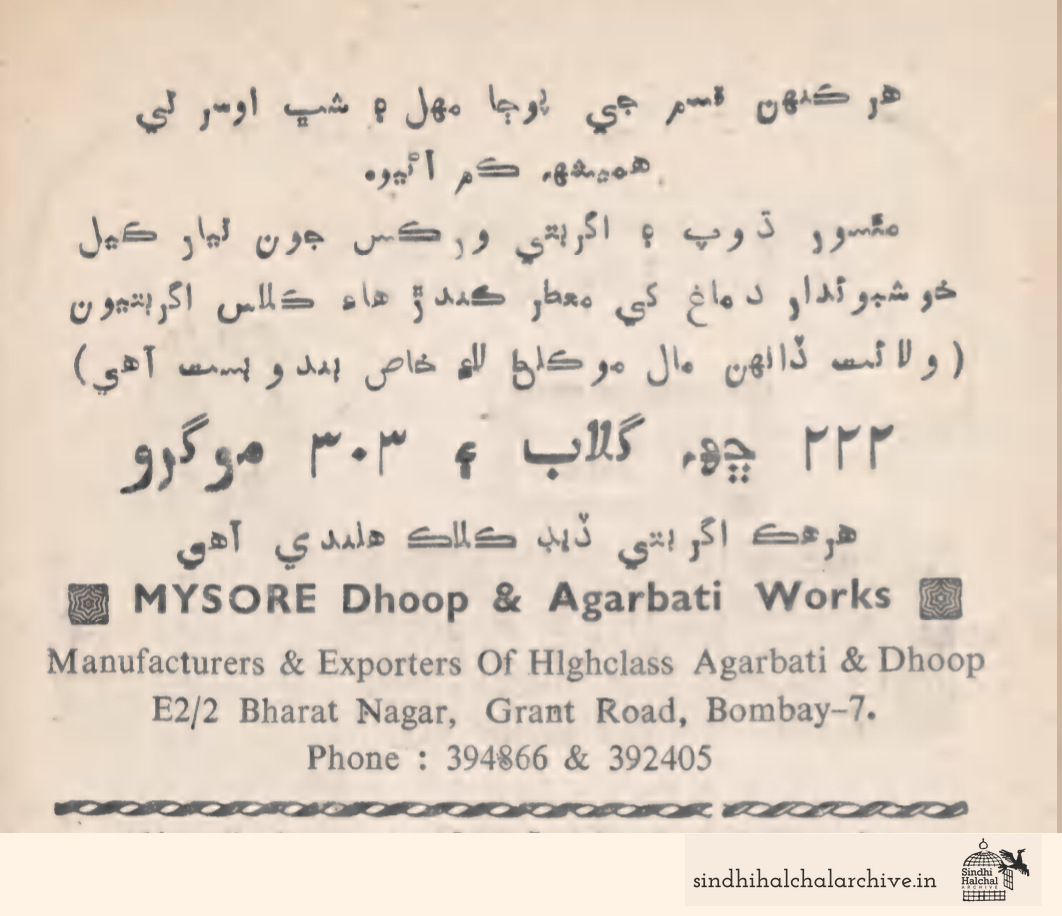 هر ڪنهن قسم جي پوڄا مهل ۽ شڀ اوسر لي
هميشهہ ڪم آڻيوہ
مئسور ڌوپ ۽ اگربتي ورڪس جون تيار ڪيل
خوشبوئدار دماغ کي معطر ڪندڙ هاء ڪلاس اگربتيون
(ولائت ڏانهن مال موڪلڻ لاءِ خاص بندوبست آهي)
٢٢٢ ڇهہ گلاب ۽ ٣٠٣ موگرو
هرهڪ اگربتي ڏيڍ ڪلاڪ هلندي آهي
MYSORE Dhoop & Agarbati Works
Manufacturers & Exporters Of HIghclass Agarbati & Dhoop
E2/2 Bharat Nagar, Grant Road, Bombay-7.
Phone : 394866 & 392405
sindhihalchalarchive.in
Sindhi
Halchal
ARCHIVE